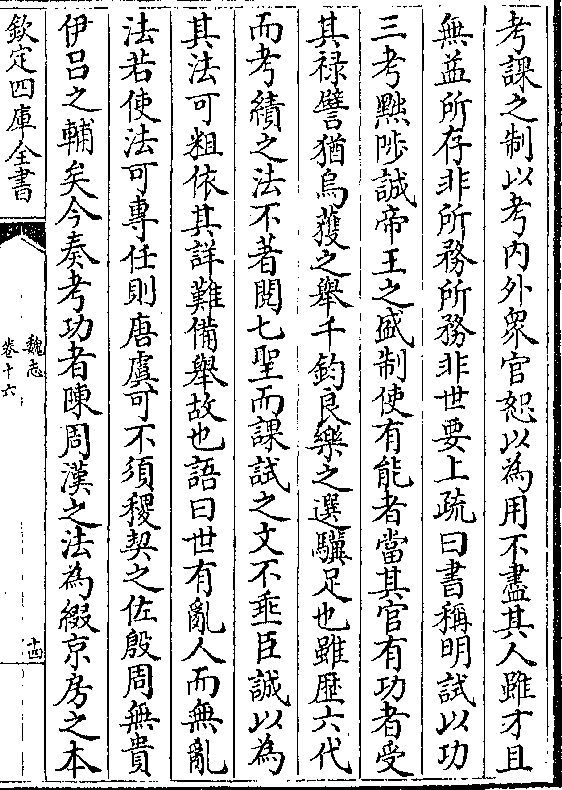 考課之制以考内外衆官恕以為用不盡其人雖才且
無益所存非所務所務非世要上疏曰書稱明試以功
三考黜陟誠帝王之盛制使有能者當其官有功者受
其禄譬猶烏獲之舉千鈞良樂之選驥足也雖歴六代
而考績之法不著閱七聖而課試之文不垂臣誠以為
其法可粗依其詳難備舉故也語曰世有亂人而無亂
法若使法可專任則唐虞可不須稷契之佐殷周無貴
伊吕之輔矣今奏考功者陳周漢之法為綴京房之本
欽定四庫全書
魏志
卷十六
十四